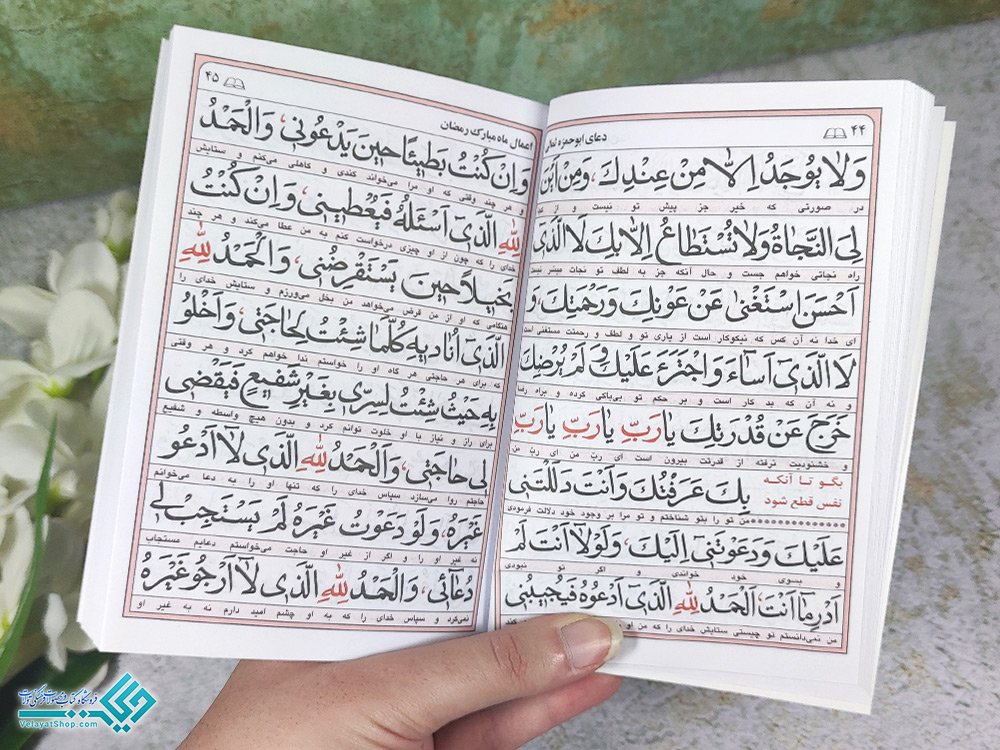 ۴۴
دعای ابوحمزه
وَلا يُوجَدُ اِلّا مِنْ عِنْدِكَ، وَمِنْ اَيْنَ
در صورتی که خیر جز پیش تو نیست و از
لِىَ النَّجاةُ وَلا تُسْتَطاعُ اِلّا بِكَ لَا الَّذى
راه نجاتی خواهم جست و حال آنکه جز به لطف تو نجات میسر نیست
اَحْسَنَ اسْتَغْنى عَنْ عَوْنِكَ وَرَحْمَتِكَ، وَ
ای خدا نه آن کس که نیکوکار است از یاری تو و لطف و رحمتت مستغنی است
لَا الَّذى اَساءَ وَاجْتَرَءَ عَلَيْكَ وَلَمْ يُرْضِكَ
و نه آن که بد کار است و بر حکم تو بی‌باکی کرده و براه رضا
خَرَجَ عَنْ قُدْرَتِكَ يا رَبِّ يا رَبِّ يا رَبِّ
و خشنودیت نرفته از قدرتت بیرون است ای ربّ من ای ربّ من
بگو تا آنکه
نفس قطع شود
بِكَ عَرَفْتُكَ وَاَنْتَ دَلَلْتَنى
من تو را بتو شناختم و تو مرا بر وجود خود دلالت فرمودی
عَلَيْكَ وَدَعَوْتَنى اِلَيْكَ، وَلَوْلا اَنْتَ لَمْ
و بسوی خود خواندی و اگر تو نبودی
اَدْرِ ما اَنْتَ، اَلْحَمْدُ لِلّهِ الَّذى اَدْعُوهُ فَيُجيبُنى
من نمی‌دانستم تو چیستی ستایش خدای را که من او
۴۵
اعمال ماه مبارک رمضان
وَاِنْ كُنْتُ بَطيئاً حينَ يَدْعُونى، وَالْحَمْدُ
و هر چند وقتی که او مرا می‌خواند کندی و کاهلی می‌کنم و ستایش
لِلّهِ الَّذى اَسْئَلُهُ فَيُعْطينى، وَاِنْ كُنْتُ
خدای را که چون از او چیزی درخواست کنم به من عطا می‌کند و هر چند
بَخيلاً حينَ يَسْتَقْرِضُنى، وَالْحَمْدُ لِلّهِ
هنگامی که او از من قرض می‌خواهد من بخل می‌ورزم و ستایش خدای را
الَّذى اُناديهِ كُلَّما شِئْتُ لِحاجَتى، وَاَخْلُو
که برای هر حاجتی هر گاه او را خواستم ندا خواهم کرد و هر وقتی
بِهِ حَيْثُ شِئْتُ لِسِرّى بِغَيْرِ شَفيعٍ فَيَقْضى
برای راز و نیاز با او خلوت توانم کرد و بدون هیچ واسطه و شفیع
لى حاجَتى، وَالْحَمْدُ لِلّهِ الَّذى لا اَدْعُو
حاجتم روا می‌سازد سپاس خدای را که تنها او را به دعا می‌خوانم
غَيْرَهُ، وَلَوْ دَعَوْتُ غَيْرَهُ لَمْ يَسْتَجِبْ لى
نه غیر او را و اگر از غیر او حاجت می‌خواستم دعایم مستجاب
دُعائى، وَالْحَمْدُ لِلّهِ الَّذى لا اَرْجُو غَيْرَهُ
نمی‌کرد و سپاس خدای را که به او چشم امید دارم نه به غیر او
VelayatShop.com